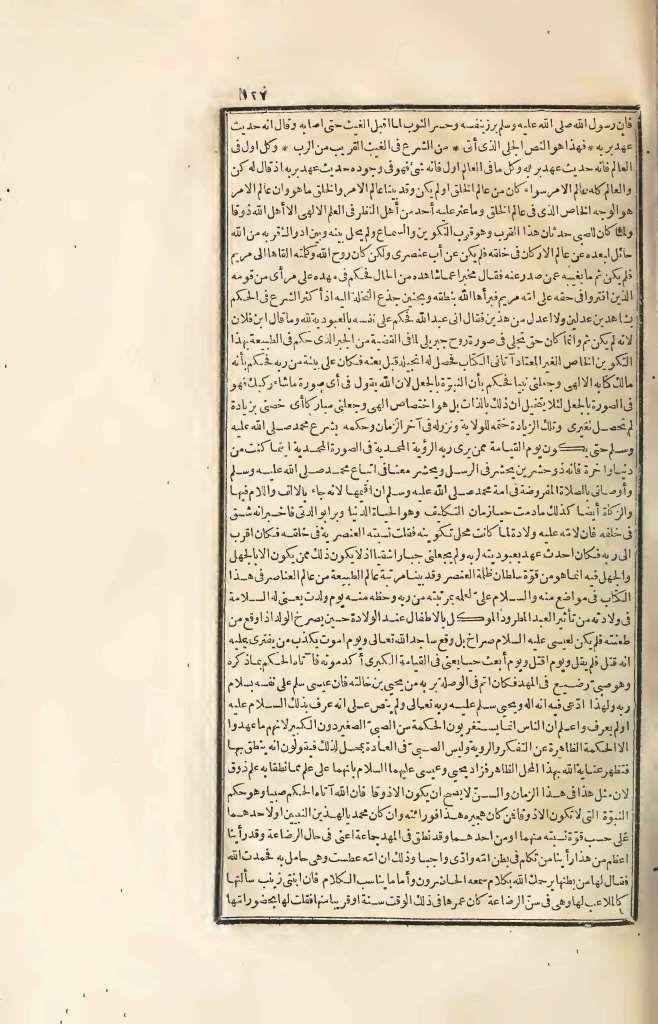 ١٢٧
فان رسول الله صلى الله عليه وسلم برز بنفسه وحسر الثوب لما اقبل الغيث حتى اصابه وقال انه حديث
عهد بربه * فهذا هو النص الجلي الذى أتى * من الشرع فى الغيث القريب من الرب * وكل اول فى
العالم فانه حديث عهد بربه وكل ما فى العالم اول فانه شئ فهو فى وجوده حديث عهد بربه اذ قال له كن
والعالم كله عالم الامر سواء كان من عالم الخلق او لم يكن وقد بينا عالم الامر والخلق ما هو وان عالم الامر
هو الوجه الخاص الذى فى عالم الخلق وما عثر عليه أحد من أهل النظر فى العلم الالهى الا أهل الله ذوقا
ولما كان للصبى حدثان هذا القرب وهو قرب التكوين والسماع ولم يحل بينه وبين ادراك قربه من الله
حائل لبعده عن عالم الاركان فى خلقه فلم يكن عن أب عنصرى ولكن كان روح الله وكلمته القاها الى مريم
فلم يكن ثم ما يغيبه عن صدر عنه فقال مخبرا عما شاهده من الحال فحكم فى مهده على مرأى من قومه
الذين افتروا فى حقه على امه مريم فبرأها الله بنطقه وبحنين جذع النخلة اليه اذ أكثر الشرع فى الحكم
بشاهدين عدلين ولا اعدل من هذين فقال انى عبد الله فحكم على نفسه بالعبودية لله وما قال ابن فلان
لانه لم يكن ثم وانما كان حق تجلى فى صورة روح جبريلى لما فى القضية من الجبر الذى حكم فى الطبيعة بهذا
التكوين الخاص الغير المعتاد آتانى الكتاب فحصل له انجيله قبل بعثه فكان على بينة من ربه فحكم بأنه
مالك كتابه الالهى وجعلنى نبيا فحكم بأن النبوة بالجعل لان الله يقول فى أى صورة ما شاء ركبك فهو
فى الصورة بالجعل لئلا يتخيل ان ذلك بالذات بل هو اختصاص الهى وجعلنى مباركا أى خصنى بزيادة
لم تحصل لغيرى وتلك الزيادة ختمه للولاية ونزوله فى آخر الزمان وحكمه بشرع محمد صلى الله عليه
وسلم حتى يكون يوم القيامة ممن يرى ربه الرؤية المحمدية فى الصورة المحمدية اينما كنت من
دنيا وآخرة فانه ذو حشرين يحشر فى الرسل ويحشر معنا فى اتباع محمد صلى الله عليه وسلم
وأوصانى بالصلاة المفروضة فى امة محمد صلى الله عليه وسلم ان اقيمها لانه جاء بالالف واللام فيها
والزكاة أيضا كذلك ما دمت حيا زمان التكليف وهو الحياة الدنيا وبرا بوالدتى فاخبر انه شق
فى خلقه فان لامه عليه ولادة لما كانت محل تكوينه فقلت نسبته العنصرية فى خلقه فكان اقرب
الى ربه فكان احدث عهد بعبوديته لربه ولم يجعلنى جبارا شقيا اذ لا يكون ذلك ممن يكون الا بالجهل
والجهل فيه انما هو من قوة سلطان ظلمة العنصر وقد بينا مرتبة عالم الطبيعة من عالم العناصر فى هذا
الكتاب فى مواضع منه والسلام على لعلمه بمرتبته من ربه وحظه منه يوم ولدت يعنى له السلامة
فى ولادته من تأثير العبد المطرود الموكل بالاطفال عند الولادة حين يصرخ الولد اذا وقع من
طعنته فلم يكن لعيسى عليه السلام صراخ بل وقع ساجد الله تعالى ويوم اموت يكذب من يفترى عليه
انه قتل فلم يقل ويوم اقتل ويوم أبعث حيا يعنى فى القيامة الكبرى أكد موته فآتاه الحكم بما ذكره
وهو صبى رضيع فى المهد فكان اتم فى الوصلة بربه من يحيى بن خالته فان عيسى سلم على نفسه بسلام
ربه ولهذا ادعى فيه انه اله ويحيى سلم عليه ربه تعالى ولم ينص على انه عرف بذلك السلام عليه
او لم يعرف واعلم ان الناس انما يستغربون الحكمة من الصبى الصغير دون الكبير لانهم ما عهدوا
الا الحكمة الظاهرة عن التفكر والروية وليس الصبى فى العادة بمحل لذلك فيقولون انه ينطق بها
فتظهر عناية الله بهذا المحل الظاهر فزاد يحيى وعيسى عليهما السلام بانهما على علم مما نطقا به علم ذوق
لان مثل هذا فى هذا الزمان والسن لا يصح ان يكون الا ذوقا فان الله آتاه الحكم صبيا وهو حكم
النبوة التى لا تكون الا ذوقا فمن كان هجيره هذا فوراثته وان كان محمديا لهذين النبيين او لاحدهما
على حسب قوة نسبته منهما او من احدهما وقد نطق فى المهد جماعة اعنى فى حال الرضاعة وقد رأينا
اعظم من هذا رأينا من تكلم فى بطن امه وادى واجبا وذلك ان امه عطست وهى حامل به فحمدت الله
فقال لها من بطنها يرحمك الله بكلام سمعه الحاضرون وأما ما يناسب الكلام فان ابنتى زينب سألتها
كالملاعب لها وهى فى سن الرضاعة كان عمرها فى ذلك الوقت سنة او قريبا منها فقلت لها بحضور امها